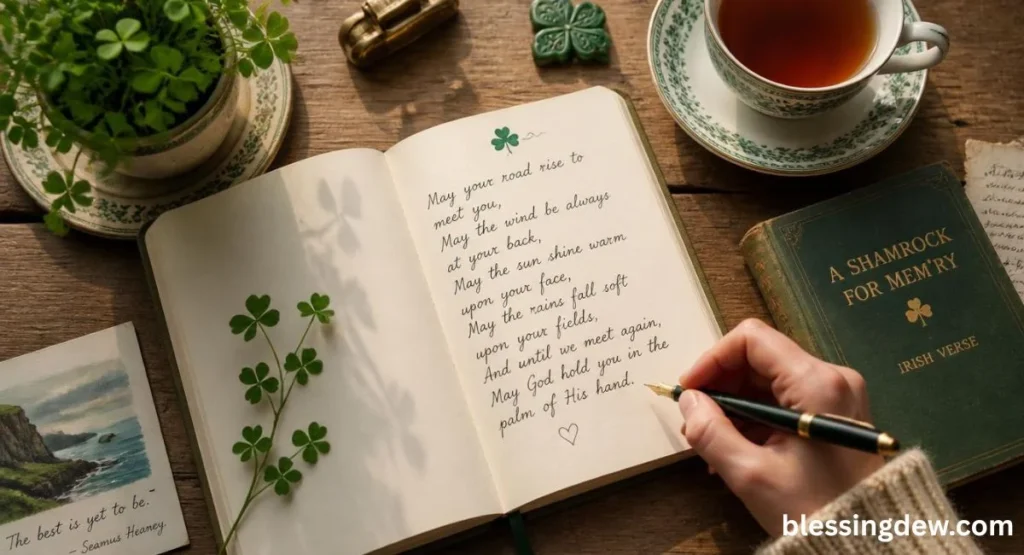 May your road rise to
meet you,
May the wind be always
at your back,
May the sun shine warm
upon your face,
May the rains fall soft
upon your fields,
And until we meet again,
May God hold you in the
palm of His hand.
A SHAMROCK
FOR MEM'RY
IRISH VERSE
"The best is yet to be."
- Seamus Heaney.
blessingdew.com